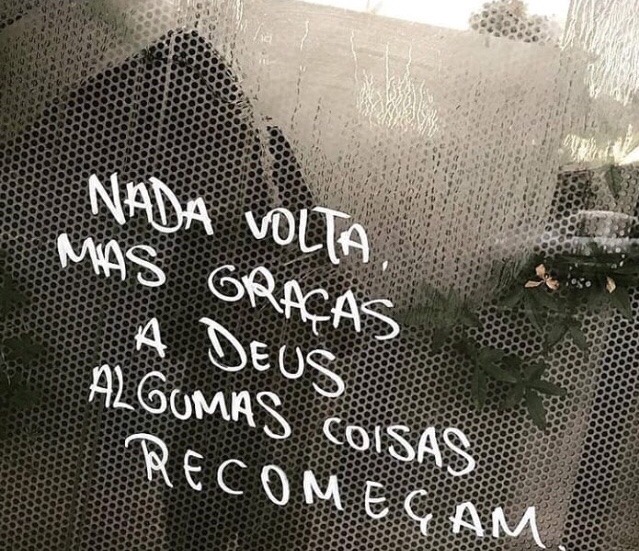 NADA VOLTA,
MAS GRAÇAS
A DEUS
ALGUMAS COISAS
RECOMEÇAM